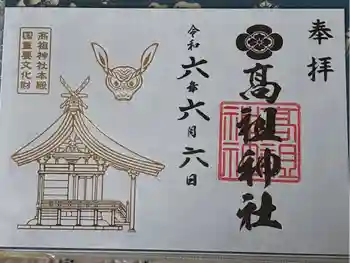 奉拝
髙祖神社
高祖神社
令和六年六月六日
高祖神社本殿
国重要文化財